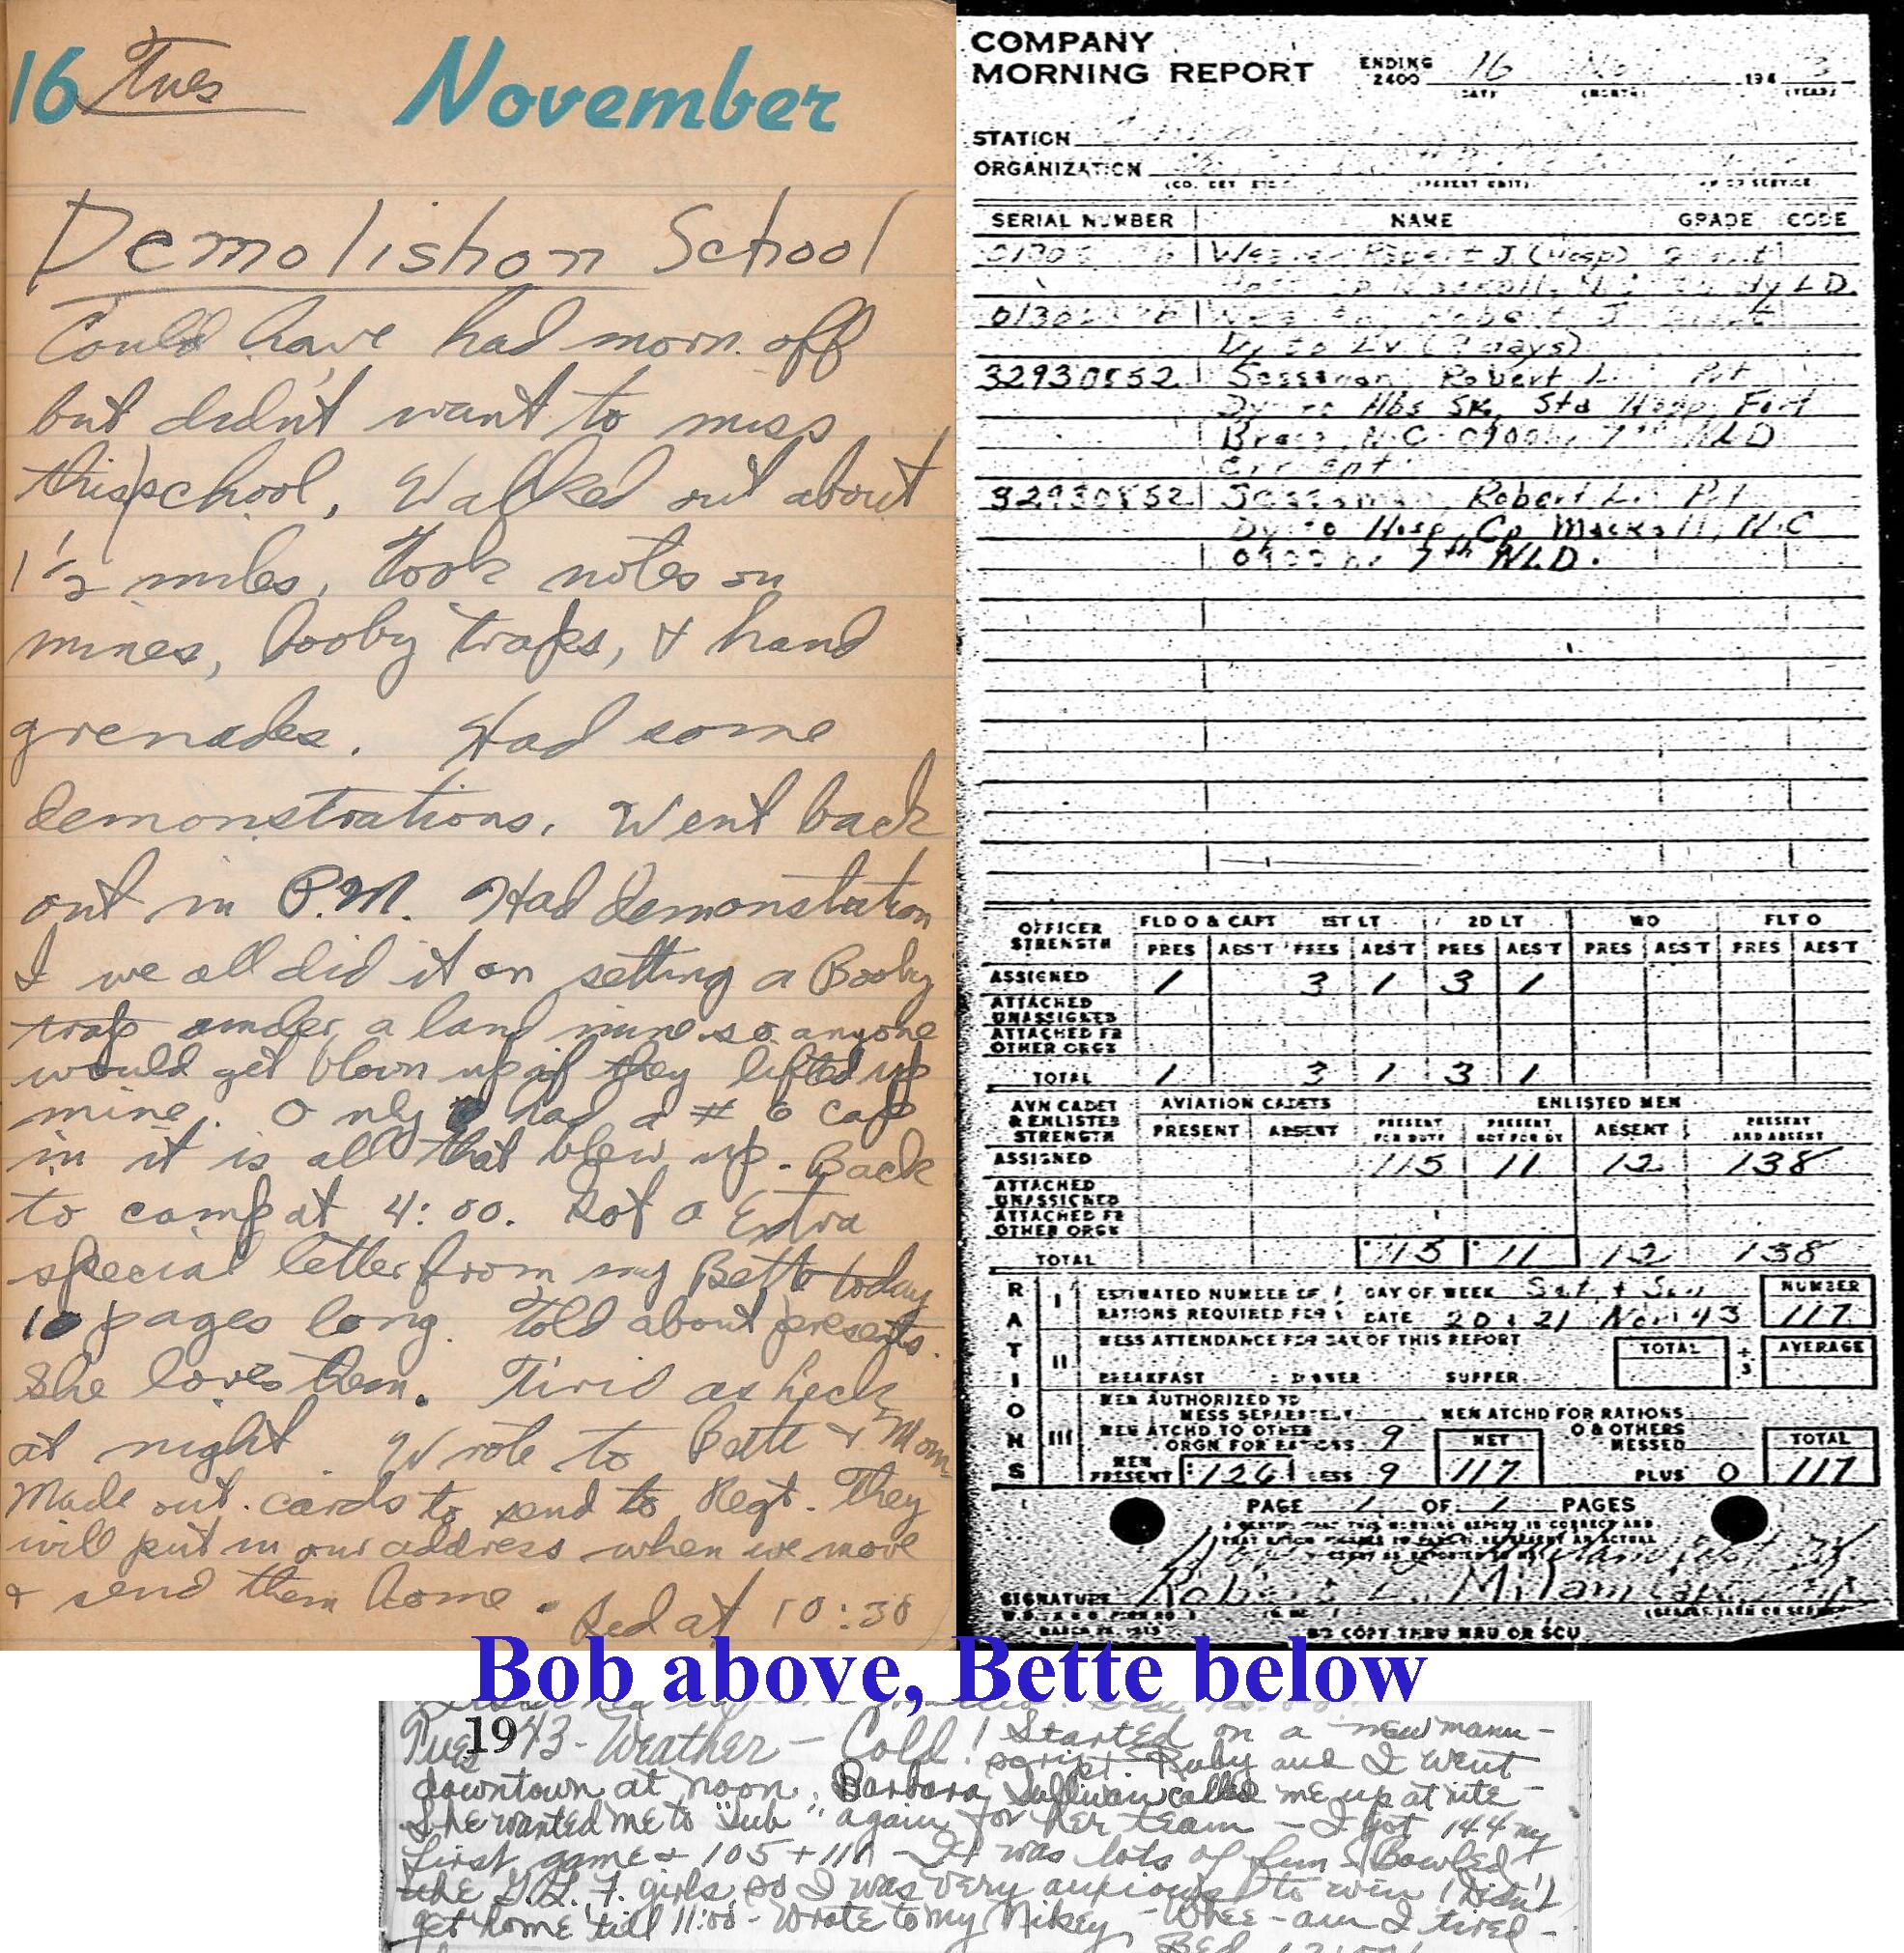 16 Tues November
Demolishon School
Could have had morn. off
but didn't want to miss
this school. Walked out about
1 1/2 miles. Took notes on
mines, booby traps, & hand
grenades. Had some
demonstrations. Went back
out in P.M. Had demonstration
& we all did it on setting a Booby
trap under a land mine so anyone
would get blown up if they lifted up
mine. Only had a # 6 cap
in it is all that blew up. Back
to camp at 4:00. Got a Extra
special letter from my Bette today
10 pages long. Told about presents.
She loves them. Tirid as heck
at night. Wrote to Bette & Mom
Made out cards to send to Regt. They
will put in our address when we move
& send them home. Bed at 10:30
COMPANY
MORNING REPORT ENDING 2400 16 194 3
(DAY) (MONTH) (YEAR)
STATION
ORGANIZATION
(PARENT UNIT) OF SERVICE
SERIAL NUMBER NAME GRADE CODE
Robert J. (Hosp)
LD.
Robert J
Dy to Lv ( days)
32930852 Robert L. Pvt
Dy to Abs Sk, Sta Hosp, Fort
Bragg, N.C. 0900 7th NLD
32930852 Robert L. Pvt
Dy to Hosp, Cp Mackall, N.C
0900 7th NLD.
OFFICER STRENGTH FLD O & CAPT 1ST LT 2D LT WO FLT O
PRES ABS'T PRES ABS'T PRES ABS'T PRES ABS'T PRES ABS'T
ASSIGNED 1 3 1 3 1
ATTACHED UNASSIGNED
ATTACHED FR OTHER ORGS
TOTAL 1 3 1 3 1
AVN CADET & ENLISTED STRENGTH AVIATION CADETS ENLISTED MEN
PRESENT ABSENT PRESENT FOR DUTY PRESENT NOT FOR DY ABSENT PRESENT AND ABSENT
ASSIGNED 115 11 12 138
ATTACHED UNASSIGNED
ATTACHED FR OTHER ORGS
TOTAL 115 11 12 138
RATIONS
I ESTIMATED NUMBER OF DAY OF WEEK Sat + Sun NUMBER
RATIONS REQUIRED FOR DATE 20 + 21 Nov 43 117
II MESS ATTENDANCE FOR DAY OF THIS REPORT TOTAL ÷ 3 AVERAGE
BREAKFAST DINNER SUPPER
III MEN AUTHORIZED TO MESS SEPARATELY MEN ATCHD FOR RATIONS
MEN ATCHD TO OTHER ORGN FOR RATIONS 9 NET & OTHERS MESSED TOTAL
MEN PRESENT 126 LESS 9 117 PLUS 0 117
PAGE 1 OF 1 PAGES
I CERTIFY THAT THIS MORNING REPORT IS CORRECT AND
SIGNATURE Robert L. Milam
COPY THRU MRU OR SCU
Bob above, Bette below
Tues 1943 - Weather - Cold! Started on a new manu-
script. Ruby and I went
downtown at noon. Barbara Sullivan called me up at nite -
She wanted me to "sub" again for her team - I got 144 my
first game & 105 + - It was lots of fun & Bowled
the G.L.F. girls so I was very anxious to win! Didn't
get home till 11:00 - Wrote to my Mikey - Whee - am I tired -